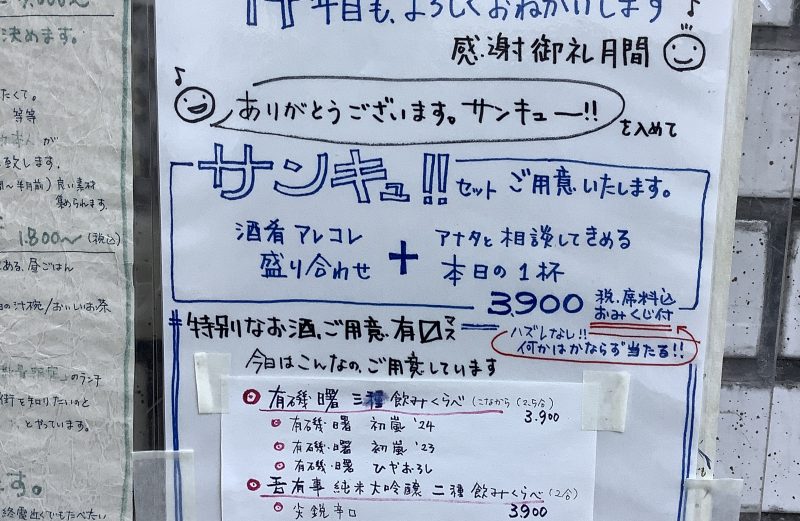 決めます。
たくて。
等等
が
致します。
良い素材
集められます。
1.800〜(税込)
昼ごはん
の汁碗/おいしいお茶
のランチ
街を知りたいのと
とやっています。
す。
終電近くでもたべたい
年目も、よろしくおねがいします♪
感謝御礼月間
♪
ありがとうございます。サンキュー!!
を込めて
サンキュ!!セットご用意いたします。
酒肴アレコレ
盛り合わせ
+
アナタと相談してきめる
本日の1杯
3,900 税・席料込
おみくじ付
ハズレなし!!
何かはかならず当たる!!
特別なお酒、ご用意有〼マス
今日はこんなの、ご用意しています
有磯・曙 三種 飲みくらべ(こなから(2.5合)
3.900
有磯・曙 初嵐 '24
有磯・曙 初嵐 '23
有磯・曙 ひやおろし
吾有事 純米大吟醸 二種 飲みくらべ(2合)
尖鋭辛口 3.900